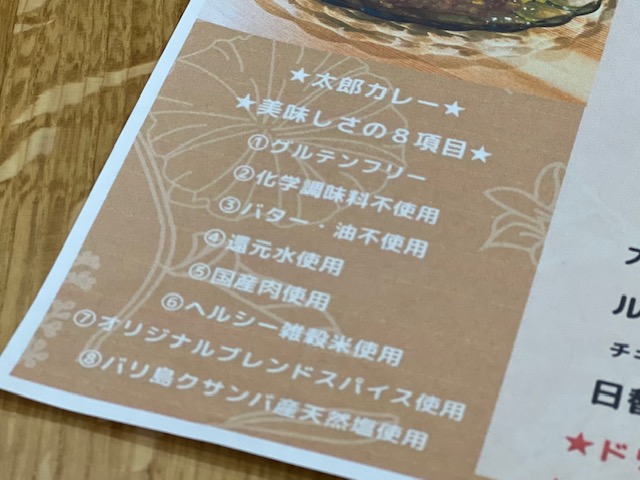 ★太郎カレー★
★美味しさの８項目★
①グルテンフリー
②化学調味料不使用
③バター・油不使用
④還元水使用
⑤国産肉使用
⑥ヘルシー雑穀米使用
⑦オリジナルブレンドスパイス使用
⑧バリ島クサンバ産天然塩使用
ル
チキ
日替
★ドリ